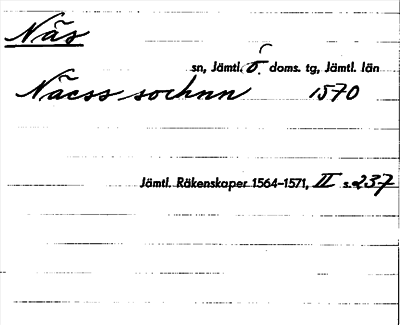 Näs
sn, Jämtl. ö. doms. tg, Jämtl. län
Näcss sochnn 1570
Jämtl. Räkenskaper 1564–1571, II s. 237